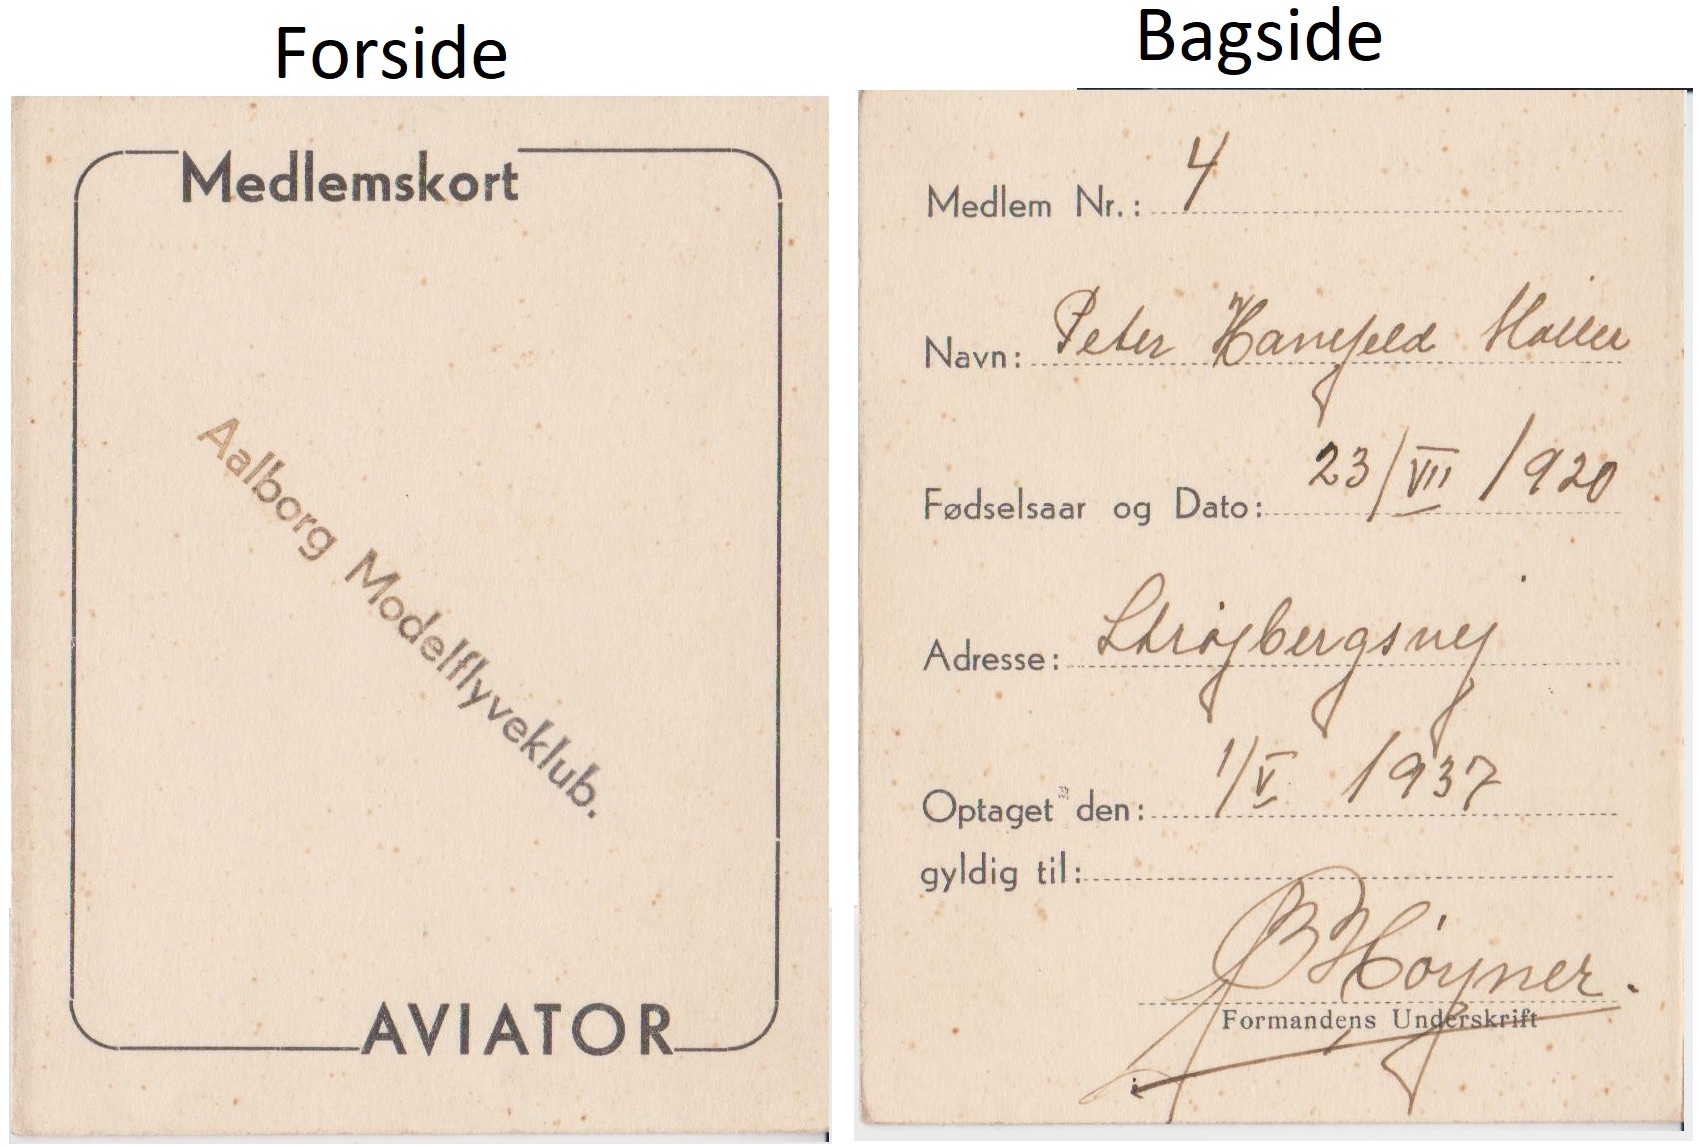 Forside
Medlemskort
Aalborg Modelflyveklub.
AVIATOR
Bagside
Medlem Nr.: 4
Navn: Peter
Fødselsaar og Dato: 23/VII /1920
Adresse:
Optaget den: 1/V /1937
gyldig til:
Høyner.
Formandens Underskrift